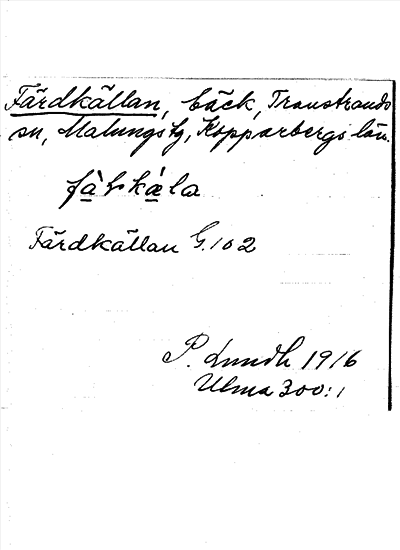 Färdkällan, bäck, Transtrands
sn, Malungs tg, Kopparbergs län.
Färdkällan G. 102
P. Lundh 1916
Ulma 300:1